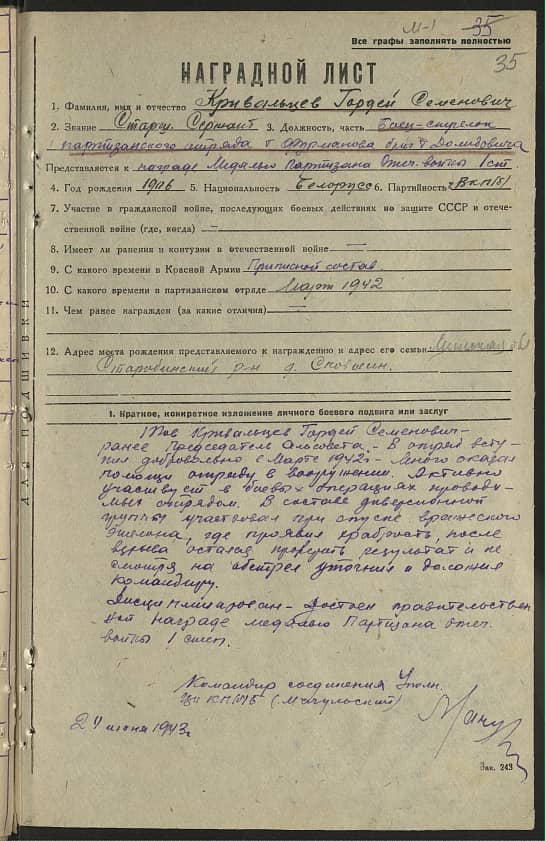 М-1 35
Все графы заполнять полностью
35
НАГРАДНОЙ ЛИСТ
1. Фамилия, имя и отчество Кривальцев Гордей Семенович
2. Звание Старш. Сержант 3. Должность, часть Боец-стрелок
партизанского отряда т Фурманова бриг.
Представляется к награде Медалью Партизана Отеч. войны 1 ст
4. Год рождения 1906 5. Национальность Белорус 6. Партийность ВКП(б)
7. Участие в гражданской войне, последующих боевых действиях по защите СССР и отече-
ственной войне (где, когда) —
8. Имеет ли ранения и контузии в отечественной войне —
9. С какого времени в Красной Армии Приписной состав
10. С какого времени в партизанском отряде Март 1942
11. Чем ранее награжден (за какие отличия) —
12. Адрес места рождения представляемого к награждению и адрес его семьи обл
Старобинский р-н д.
ДЛЯ ПОДШИВКИ
1. Краткое, конкретное изложение личного боевого подвига или заслуг
Тов Кривальцев Гордей Семенович-
ранее Председатель сельсовета - В отряд всту-
пил добровольно с Марта 1942г - Много оказал
помощи отряду в вооружении. Активно
участвует в боевых операциях проводи-
мых отрядом. В составе диверсионной
группы участвовал при спуске вражеского
эшелона, где проявил храбрость, после
взрыва остался проверить результат и не
смотря на обстрел уточнил и доложил
командиру.
Дисциплинирован - Достоен правительствен
ной награде медалью Партизана отеч.
войны 1 степ.
Командир соединения Уполн.
ЦК КП(б)Б (Мачульский)
24 июня 1943г
Зак. 243